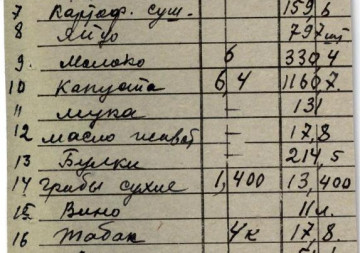 7 Картоф. суш. 159 6
8 Яйцо 797 шт
9. Молоко 6 330 4
10 Капуста 6,4 1160 7
11 Мука – 131
12 масло – 17,8
13 Булки – 214,5
14 грибы сухие 1,400 13,400
15 Вино 11 л.
16 Табак 4к 17,8.